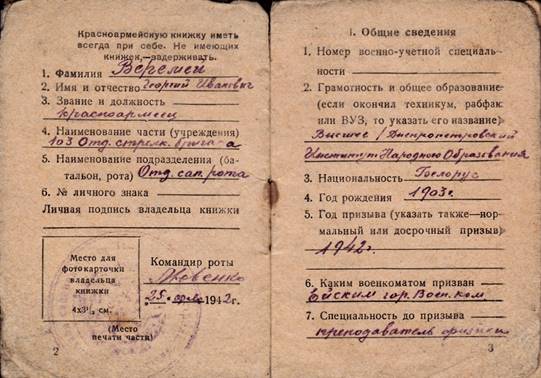 Красноармейскую книжку иметь
всегда при себе. Не имеющих
книжек—задерживать.
1. Фамилия Веремей
2. Имя и отчество Георгий Иванович
3. Звание и должность
красноармеец
4. Наименование части (учреждения)
103 Отд. стрелк. бригада
5. Наименование подразделения (ба-
тальон, рота) Отд. сап. рота
6. № личного знака
Личная подпись владельца книжки
Место для
фотокарточки
владельца
книжки
4х3½ см.
(Место
печати части)
Командир роты
Яковенко
25 1942г.
2
I. Общие сведения
1. Номер военно-учетной специаль-
ности
2. Грамотность и общее образование
(если окончил техникум, рабфак
или ВУЗ, то указать его название)
Высшее/Днепропетровский
Институт Народного Образования
3. Национальность Белорус
4. Год рождения 1903г.
5. Год призыва (указать также—нор-
мальный или досрочный призыв)
1942г.
6. Каким военкоматом призван
Ейским гор. Воен. ком.
7. Специальность до призыва
преподаватель физики
3